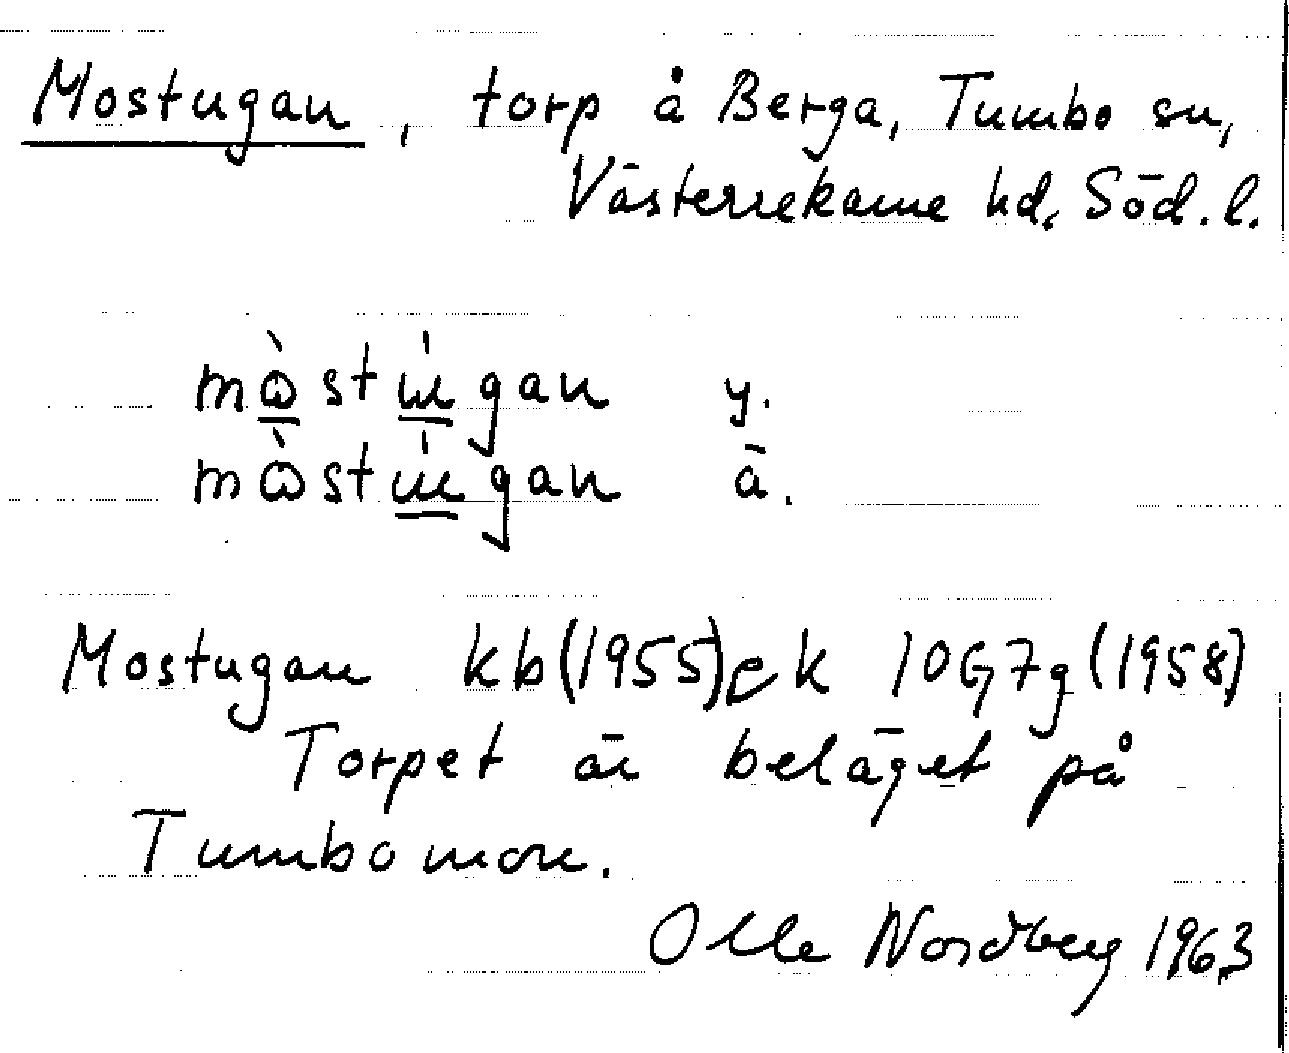 Mostugan, torp å Berga, Tumbo sn,
Västerrekarne hd, Söd. l.
mɷ̀stɯ́gan y.
mɷ̀stɯ́gan ä.
Mostugan kb(1955) ek 10G7g(1958)
Torpet är beläget på
Tumbo mon.
Olle Nordberg 1963